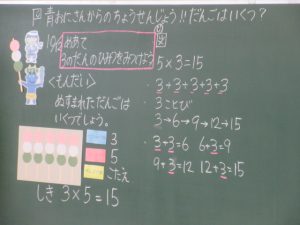 青おにさんからのちょうせんじょう!!だんごはいくつ?
めあて
3のだんのひみつをみつけよう
5×3=15
<もんだい>
ぬすまれただんごは
いくつでしょう。
3+3+3+3+3
3ことび
3→6→9→12→15
3+3=6 6+3=9
9+3=12 12+3=15
3
5
こたえ
しき 3×5=15